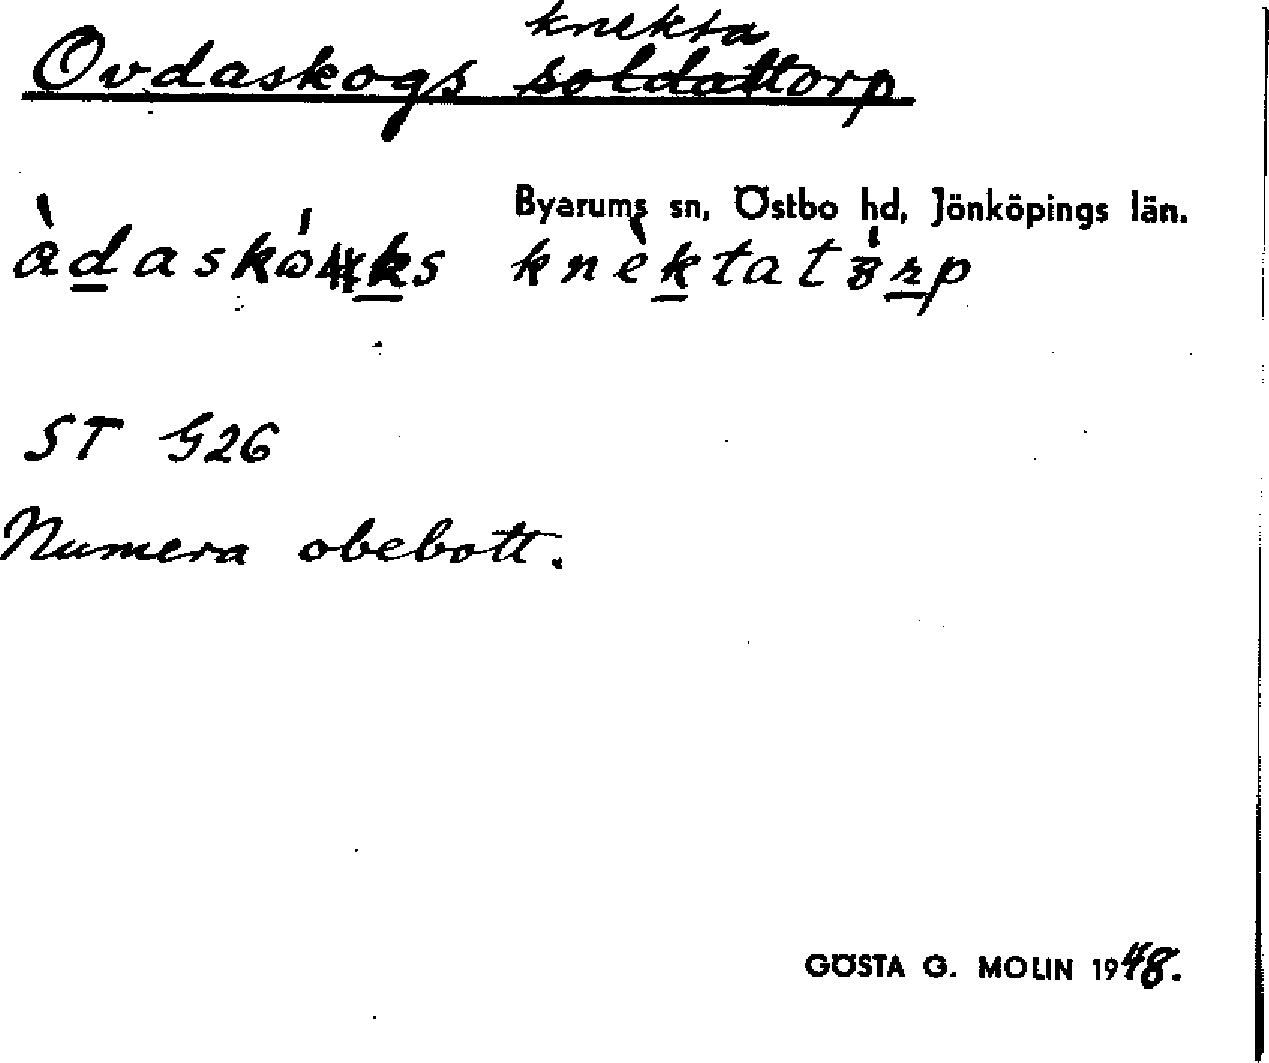 knekta
Ovdaskogs soldattorp
Byarums sn, Östbo hd, Jönköpings län.
àdaskóks knèktatórp
ST G26
Numera obebott.
GÖSTA G. MOLIN 1948.